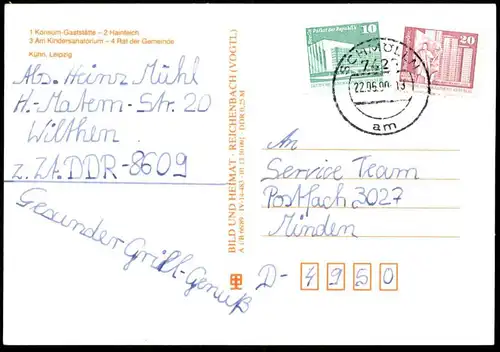 1 Konsum-Gaststätte – 2 Hainteich
3 Am Kindersanatorium – 4 Rat der Gemeinde
Kühn, Leipzig
Abs. Heinz Mühl
H.-Matern-Str. 20
Wilthen
z. Zt. DDR-8609
Gesunder Grill-Genuß
BILD UND HEIMAT · REICHENBACH (VOGTL)
10
Palast der Republik
20
SCHMÖLLN
22.06.90
am
An
Service Team
Postfach 3027
Minden
D- 4950